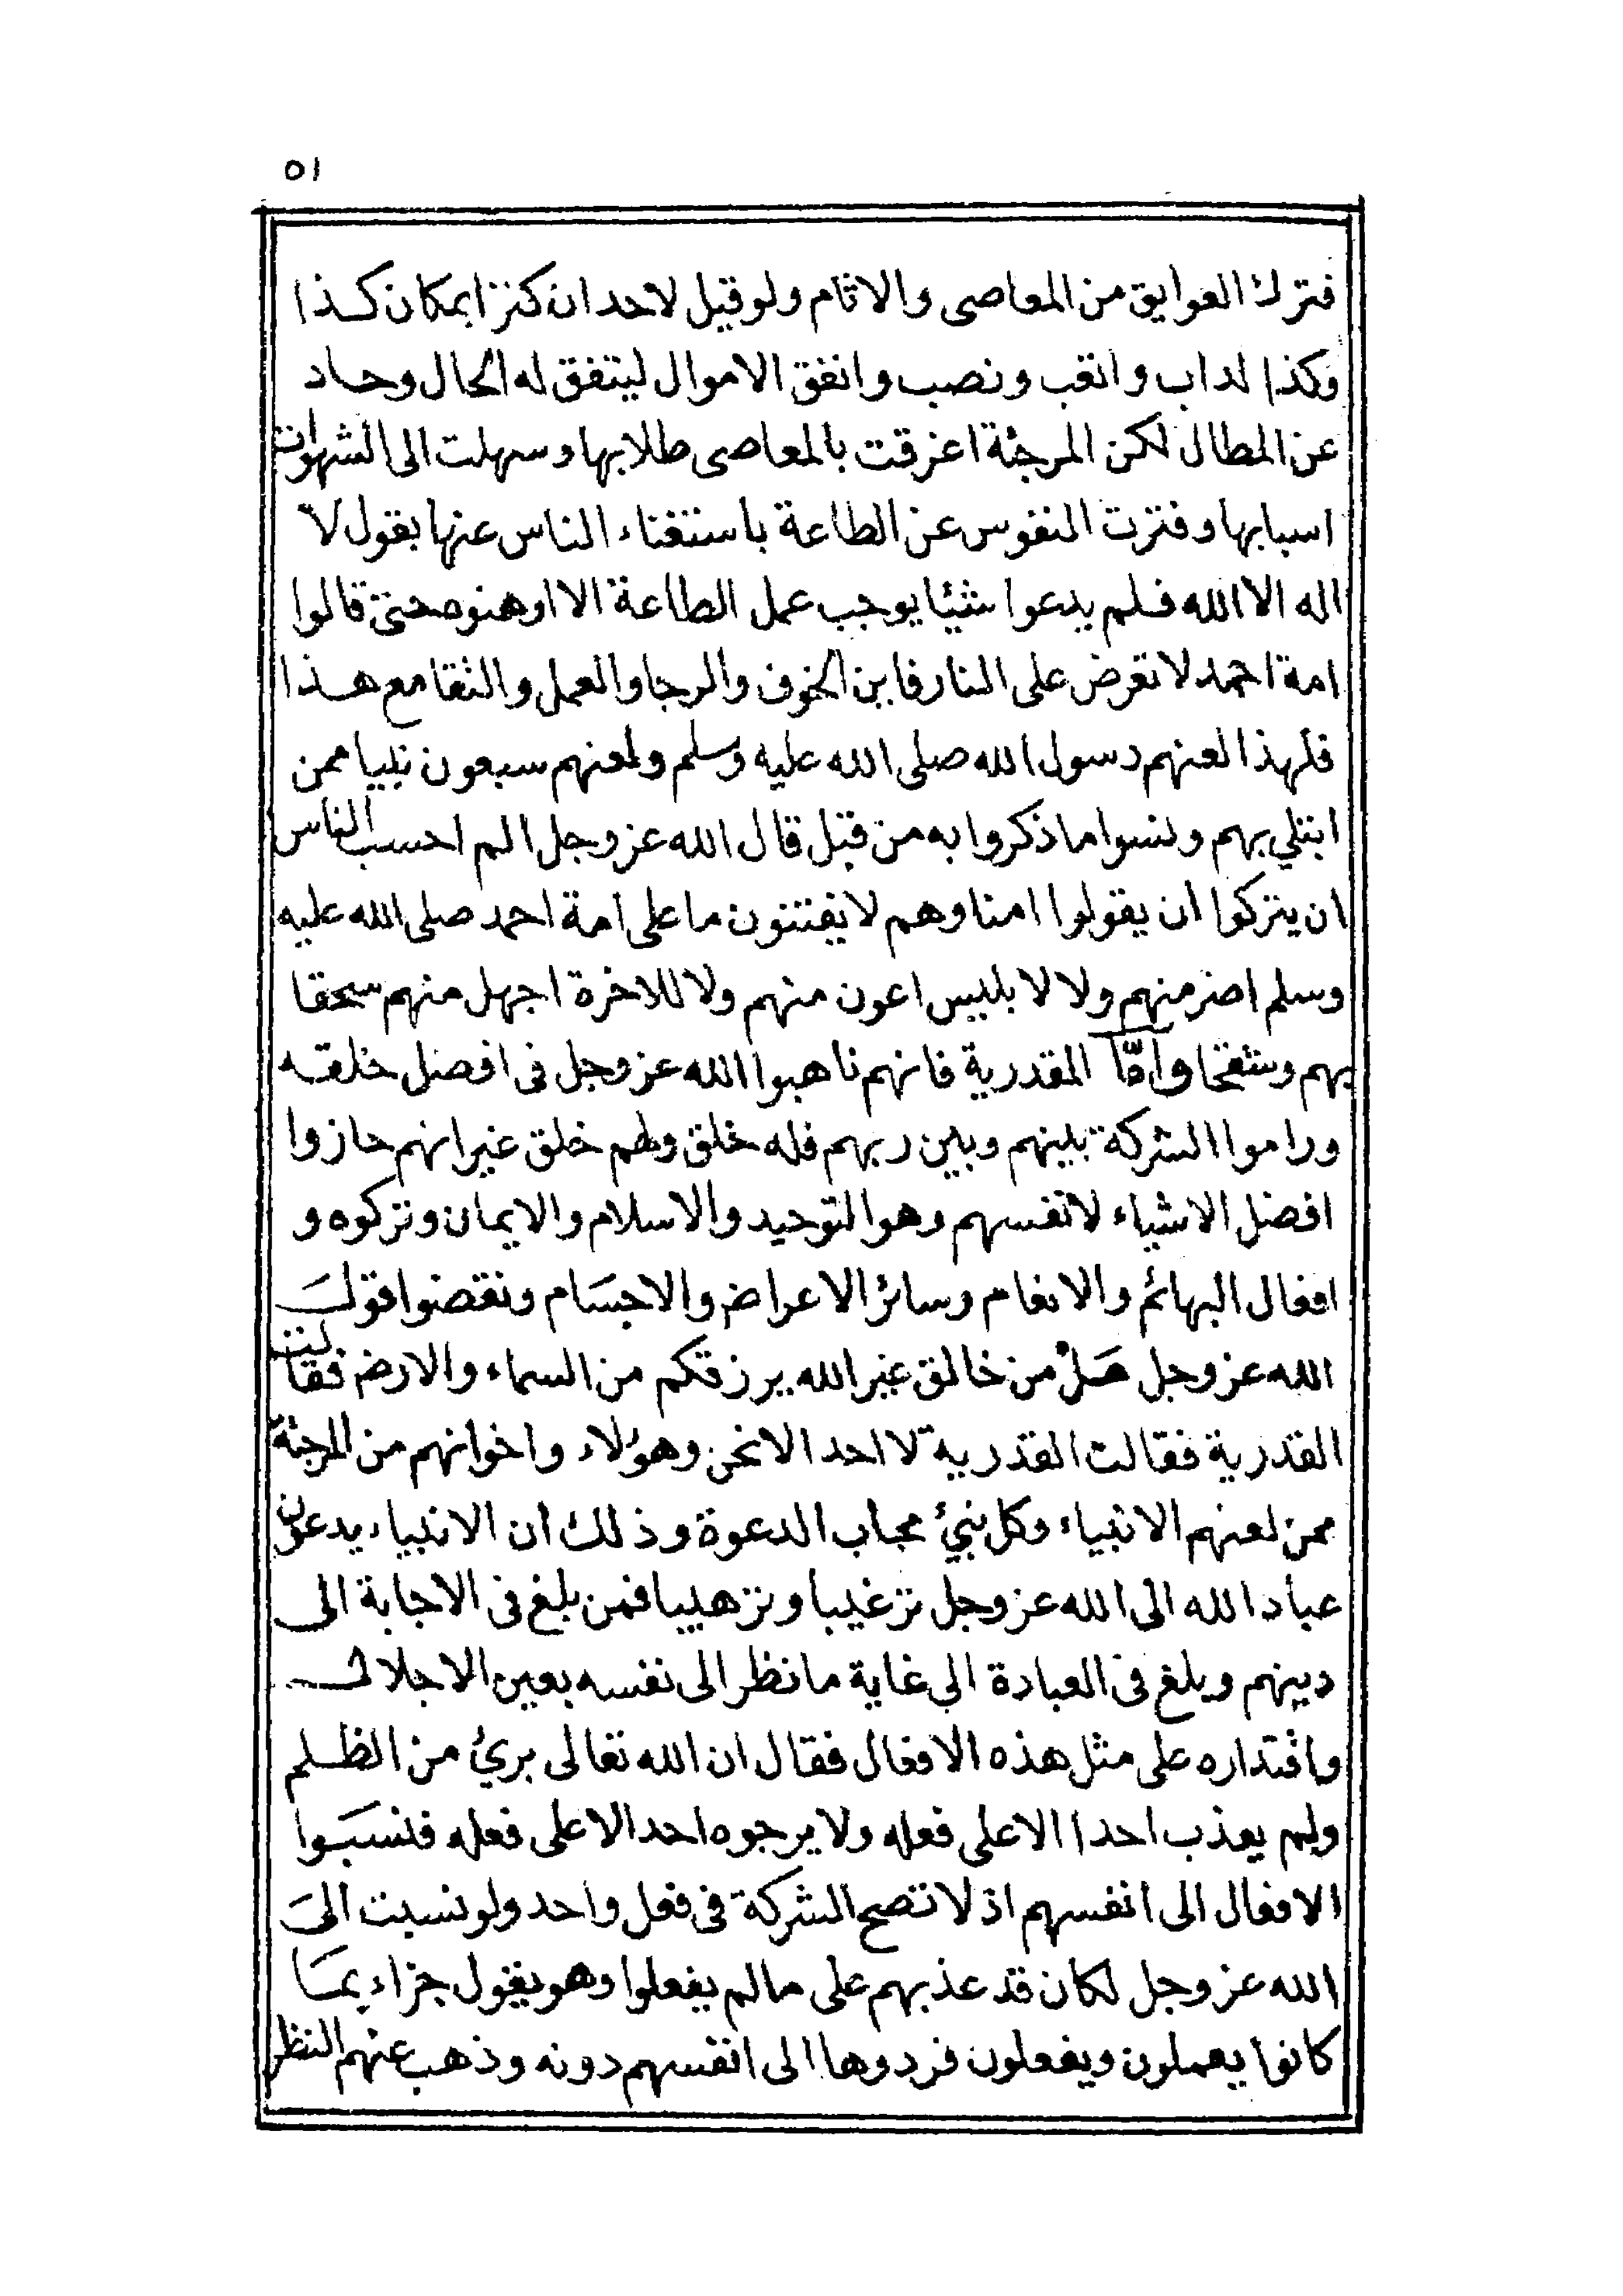 ٥١
فترك العوايق من المعاصى والاثام ولو قيل لاحد ان كنزا بمكان كذا
وكذا لداب واتعب ونصب وانفق الاموال ليتفق له الحال وحاد
عن المطال لكن المرجئة اغرقت بالمعاصى طلابها وسهلت الى الشهوات
اسبابها وفترت النفوس عن الطاعة باستغناء الناس عنها بقول لا
اله الا الله فلم يدعوا شيئا يوجب عمل الطاعة الا اوهنوه حتى قالوا
امة احمد لا تعرض على النار فاين الخوف والرجا والعمل والتقا مع هذا
فلهذا لعنهم رسول الله صلى الله عليه وسلم ولعنهم سبعون نبيا ممن
ابتلي بهم ونسوا ما ذكروا به من قبل قال الله عز وجل الم احسب الناس
ان يتركوا ان يقولوا امنا وهم لا يفتنون ما على امة احمد صلى الله عليه
وسلم اضر منهم ولا لابليس اعون منهم ولا للاخرة اجهل منهم سحقا
بهم وشقحا وامّا المقدرية فانهم ناهبوا الله عز وجل فى افضل خلقه
وراموا الشركة بينهم وبين ربهم فله خلق ولهم خلق غير انهم حازوا
افضل الاشياء لانفسهم وهو التوحيد والاسلام والايمان وتركوه و
افعال البهائم والانعام وسائر الاعراض والاجسَام ونقضوا قول
الله عز وجل هَلْ من خالق غير الله يرزقكم من السماء والارض فقالت
القدرية فقالت القدرية لا احد الا نحن وهؤلاء واخوانهم من المرجئة
ممن لعنهم الانبياء وكل نبيء مجاب الدعوة وذلك ان الانبياء يدعون
عباد الله الى الله عز وجل ترغيبا وترهيبا فمن بلغ فى الاجابة الى
دينهم وبلغ فى العبادة الى غاية ما نظر الى نفسه بعين الاجلال
واقتداره على مثل هذه الافعال فقال ان الله تعالى بريء من الظلم
ولم يعذب احدا الا على فعله ولا يرجوه احد الا على فعله فنسبَوا
الافعال الى انفسهم اذ لا تصح الشركة فى فعل واحد ولو نسبت الىَ
الله عز وجل لكان قد عذبهم على ما لم يفعلوا وهو يقول جزاء بمَا
كانوا يعملون ويفعلون فردوها الى انفسهم دونه وذهب عنهم النظر